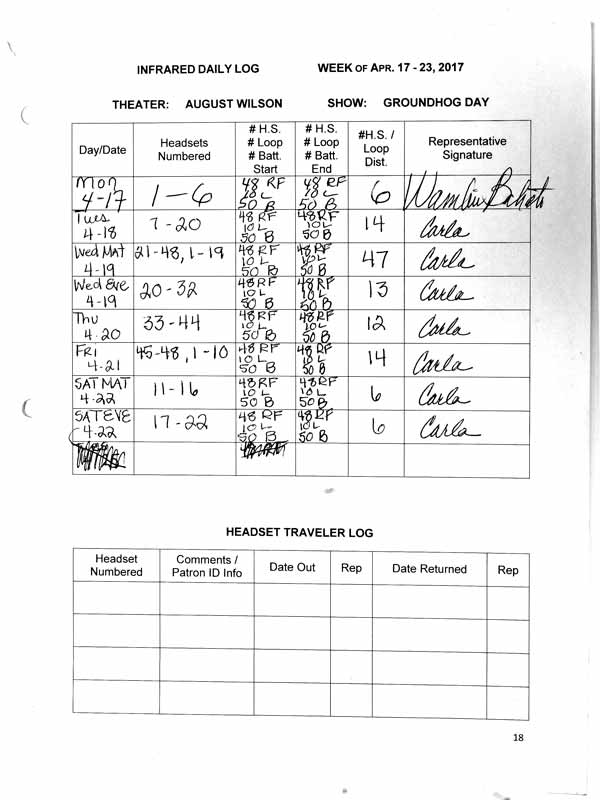 INFRARED DAILY LOG WEEK OF APR. 17 - 23, 2017
THEATER: AUGUST WILSON SHOW: GROUNDHOG DAY
Day/Date Headsets Numbered # H.S. # Loop # Batt. Start # H.S. # Loop # Batt. End #H.S. / Loop Dist. Representative Signature
Mon 4-17 1-6 48 RF 10 L 50 B 48 RF 10 L 50 B 6
Tues 4-18 7-20 48 RF 10 L 50 B 48 RF 10 L 50 B 14 Carla
Wed Mat 4-19 21-48, 1-19 48 RF 10 L 50 B 48 RF 10 L 50 B 47 Carla
Wed Eve 4-19 20-32 48 RF 10 L 50 B 48 RF 10 L 50 B 13 Carla
Thu 4.20 33-44 48 RF 10 L 50 B 48 RF 10 L 50 B 12 Carla
FRI 4.21 45-48, 1-10 48 RF 10 L 50 B 48 RF 10 L 50 B 14 Carla
SAT MAT 4.22 11-16 48 RF 10 L 50 B 48 RF 10 L 50 B 6 Carla
SAT EVE 4.22 17-22 48 RF 10 L 50 B 48 RF 10 L 50 B 6 Carla
HEADSET TRAVELER LOG
Headset Numbered Comments / Patron ID Info Date Out Rep Date Returned Rep
18